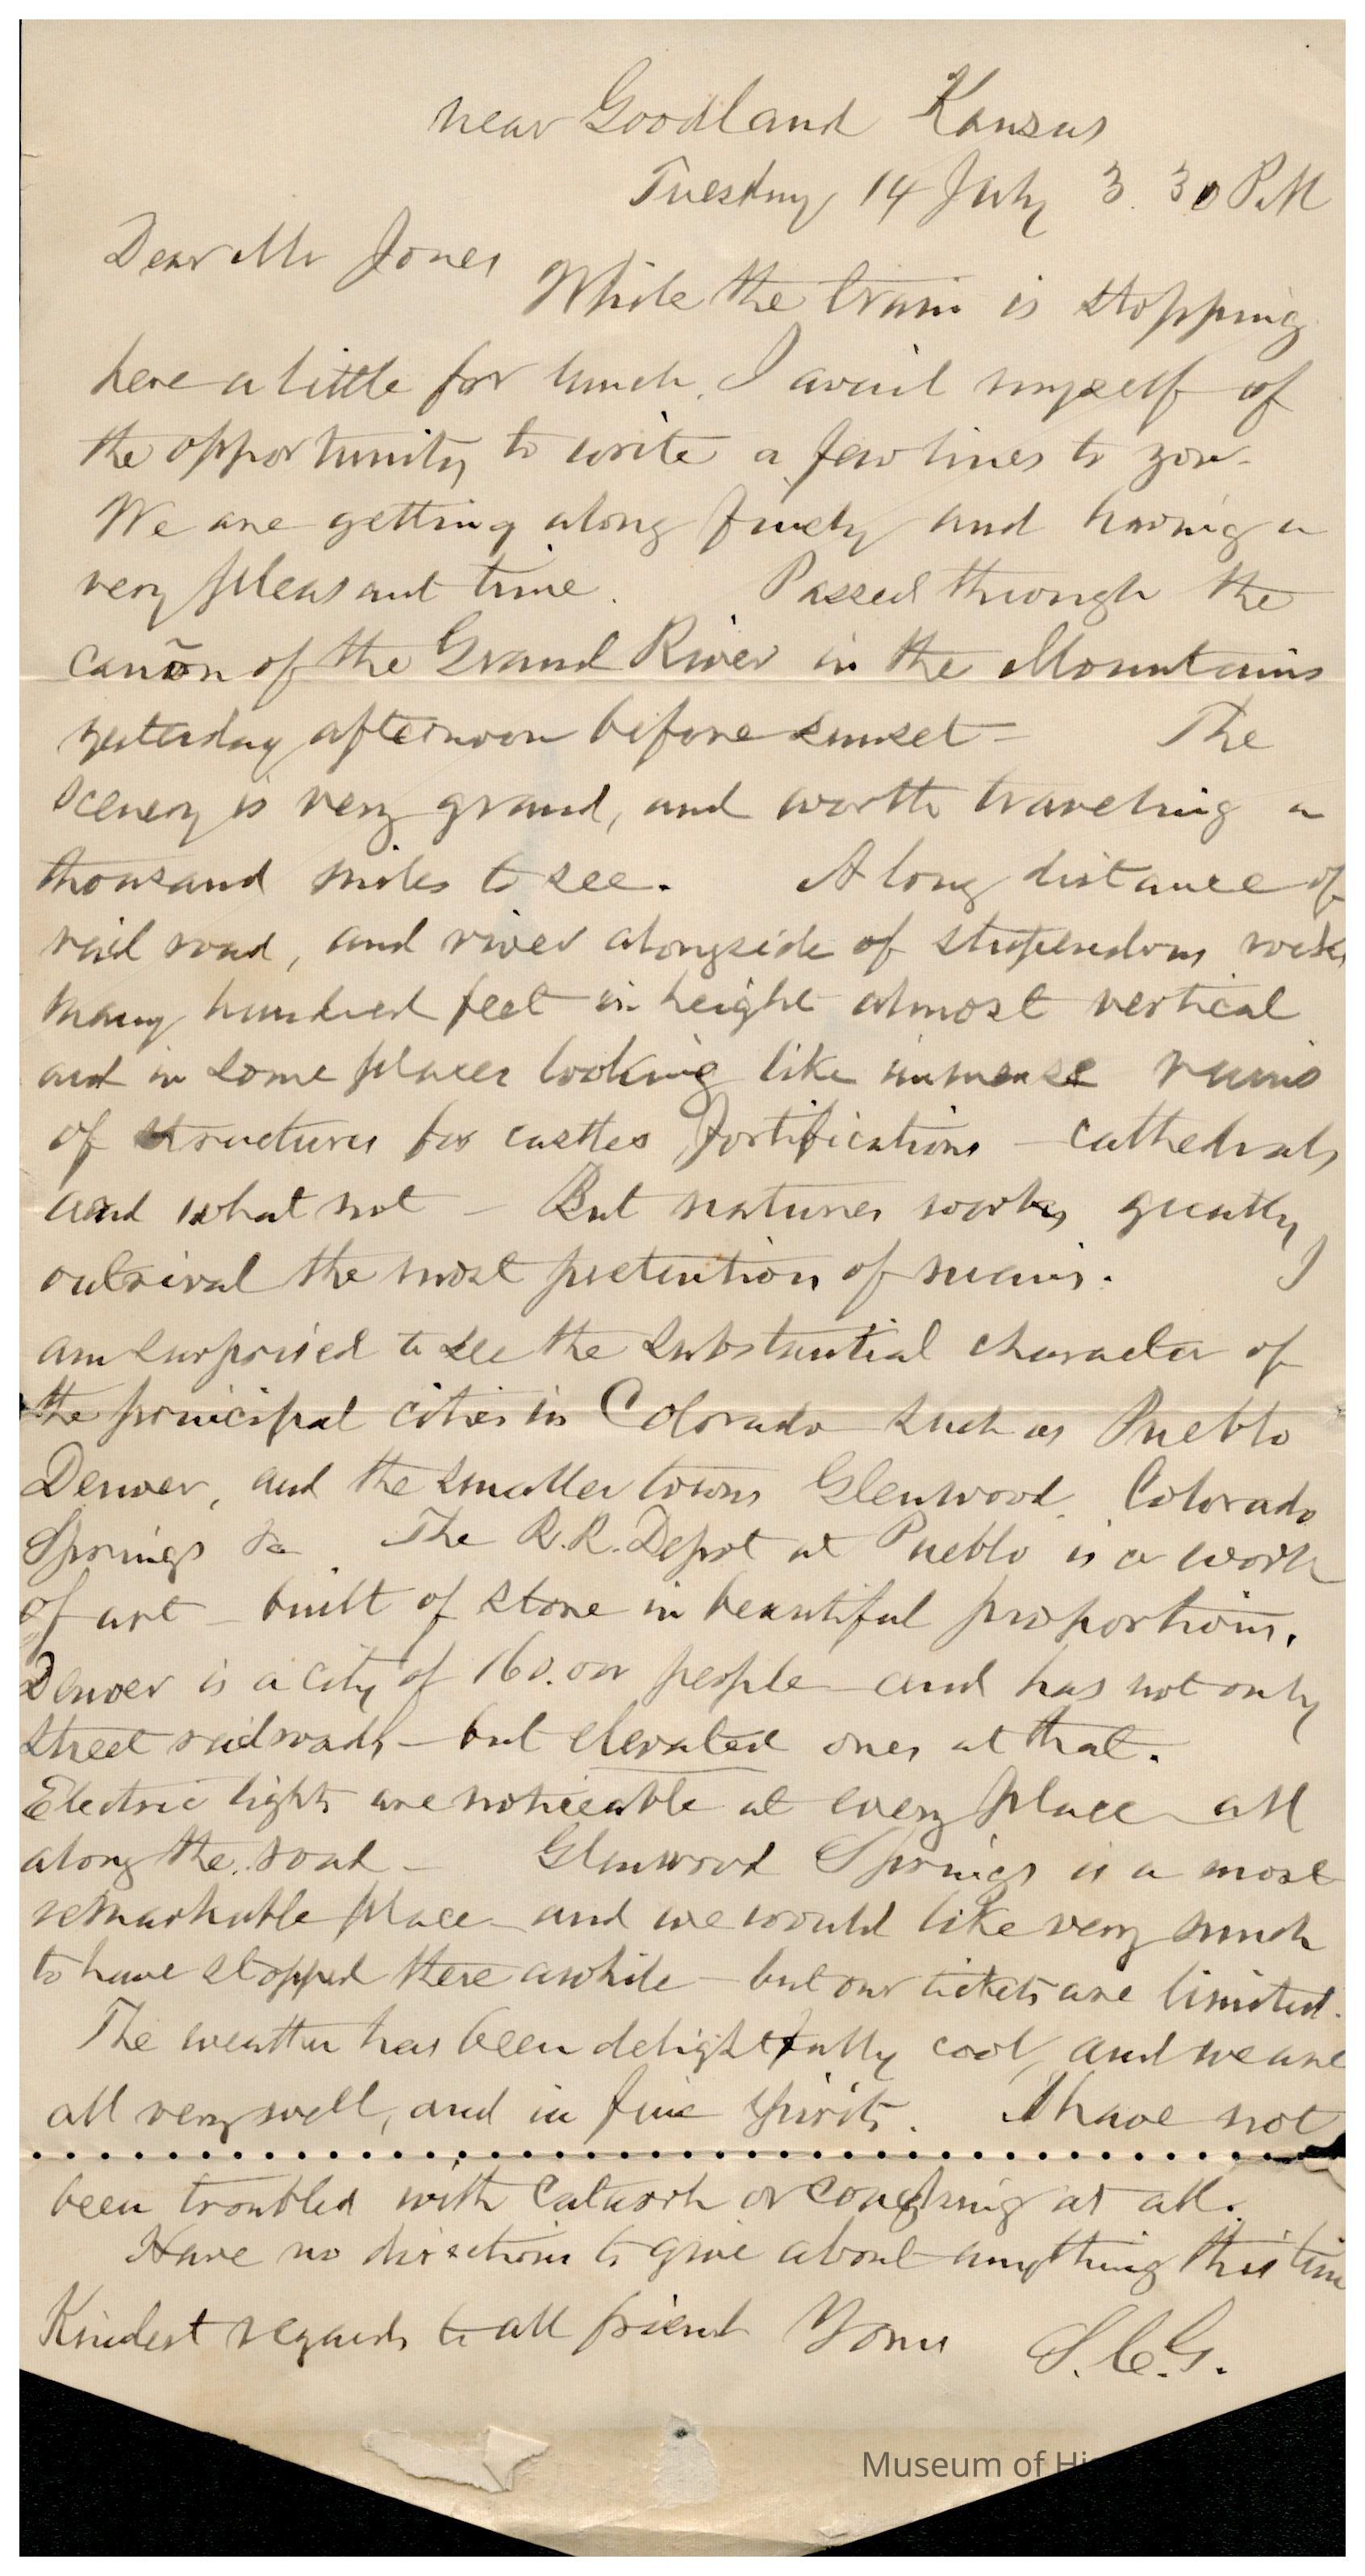 near Goodland Kansas
Tuesday 14 July 3.30 P.M
Dear Mr Jones
While the train is stopping
here a little for lunch, I avail myself of
the opportunity to write a few lines to you.
We are getting along finely and having a
very pleasant time. Passed through the
cañon of the Grand River in the Mountains
yesterday afternoon before sunset – The
scenery is very grand, and worth traveling a
thousand miles to see. A long distance of
rail road, and river alongside of stupendous rocks
many hundred feet in height almost vertical
and in some places looking like immense ruins
of structures for castles fortifications – cathedrals,
and what not – But natures works greatly
outrival the most pretention of means. I
am surprised to see the substantial character of
the principal cities in Colorado such as Pueblo
Denver, and the smaller towns Glenwood, Colorado
Springs &c. The R.R. Depot at Pueblo is a work
of art – built of stone in beautiful proportions.
Denver is a city of 160.000 people – and has not only
street railroads – but elevated ones at that.
Electric lights are noticeable at every place all
along the road – Glenwood Springs is a most
remarkable place – and we would like very much
to have stopped there awhile – but our tickets are limited.
The weather has been delightfully cool, and we are
all very well, and in fine spirits. I have not
been troubled with catarrh or coughing at all.
Have no directions to give about anything this time
Kindest regards to all friend Yours S.C.G.
Museum of Hi